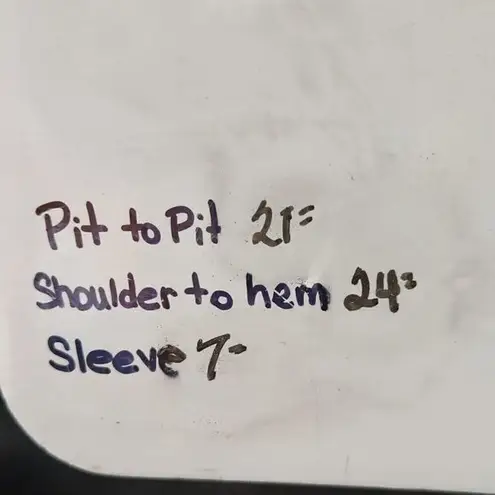 Pit to Pit 21"
Shoulder to hem 24"
Sleeve 7"